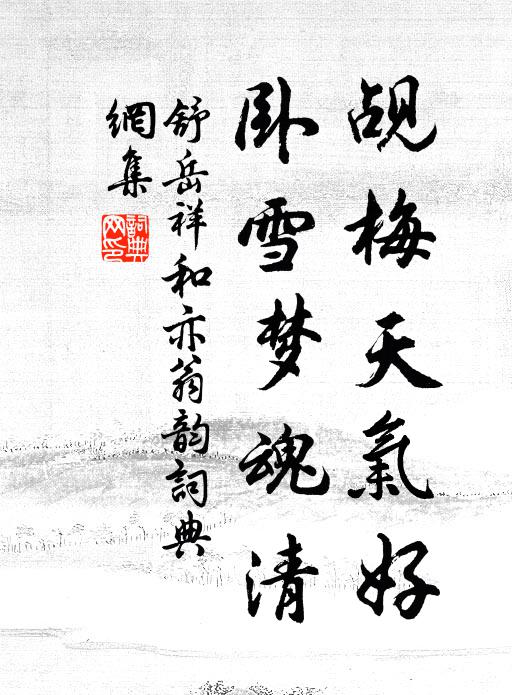 觇梅天氣好
卧雪梦魂清
舒岳祥和亦翁韵詞典
網集
詞典
网印